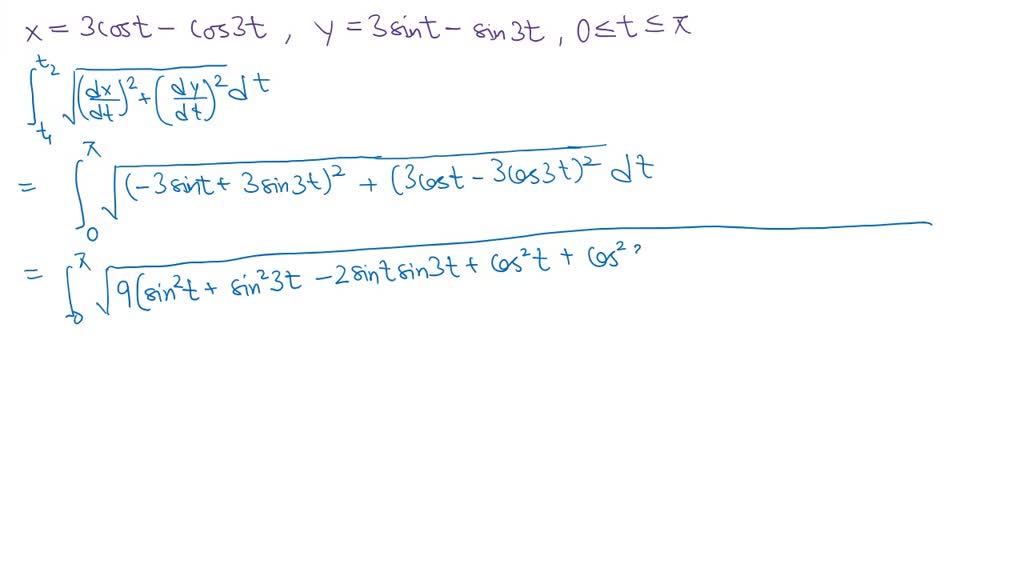 x = 3cost - cos3t , y = 3sint - sin3t , 0 ≤ t ≤ π
∫_{t₁}^{t₂} √((dx/dt)² + (dy/dt)²) dt
= ∫_0^π √((-3sint + 3sin3t)² + (3cost - 3cos3t)²) dt
= ∫_0^π √(9(sin²t + sin²3t - 2sintsin3t + cos²t + cos²